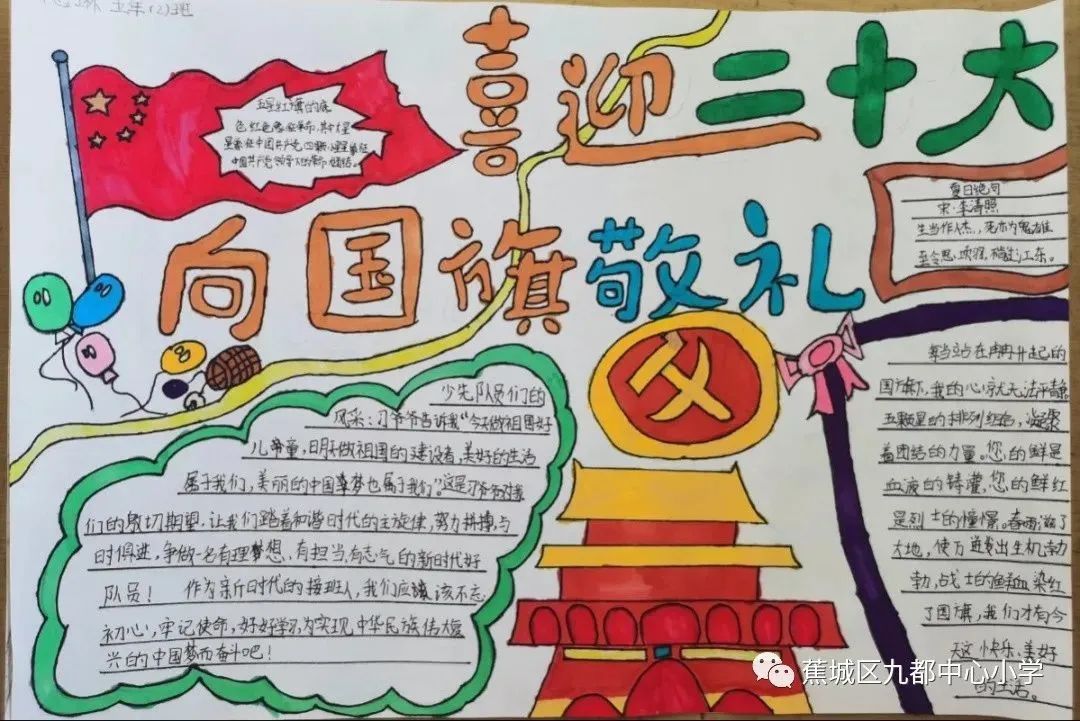 五年(2)班
喜迎二十大
向国旗敬礼
五星红旗的底
色红色象征革命,其中大星
中国共产党领导下的
夏日绝句
宋·李清照
生当作人杰,死亦为鬼雄
至今思项羽,不肯过江东。
少先队员们的
风采:习爷爷告诉我"今天做祖国好
儿童,明天做祖国的建设者,美好的生活
属于我们,美丽的中国梦也属于我们。"这是习爷爷对我
们的殷切期望,让我们踏着和谐时代的主旋律,努力拼搏与
时俱进,争做一名有理梦想、有担当,有志气的新时代好
队员! 作为新时代的接班人,我们应该不忘
初心,牢记使命,好好学习,为实现中华民族伟大复
兴的中国梦而奋斗吧!
每当站在冉冉升起的
国旗下,我的心就无法平静
五颗星的排列红色,凝聚
着团结的力量。您,的鲜是
血液的铸灌,您,的鲜红
是烈士的憧憬。春雨滋了
大地,使万进发出生机勃
勃,战士的鲜血染红
了国旗,我们才有今
天这快乐、美好
的生活。
蕉城区九都中心小学